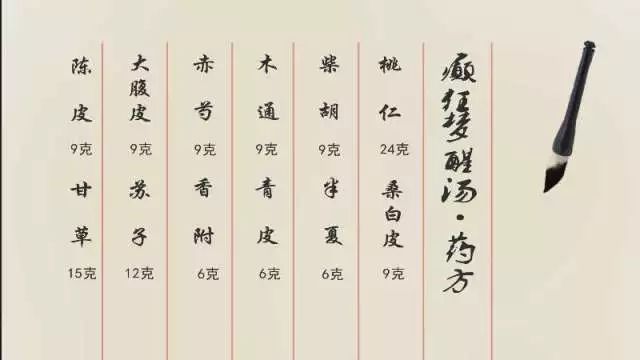 癫狂梦醒汤·药方
桃仁
24克
桑白皮
9克
柴胡
9克
半夏
6克
木通
9克
青皮
6克
赤芍
9克
香附
6克
大腹皮
9克
苏子
12克
陈皮
9克
甘草
15克